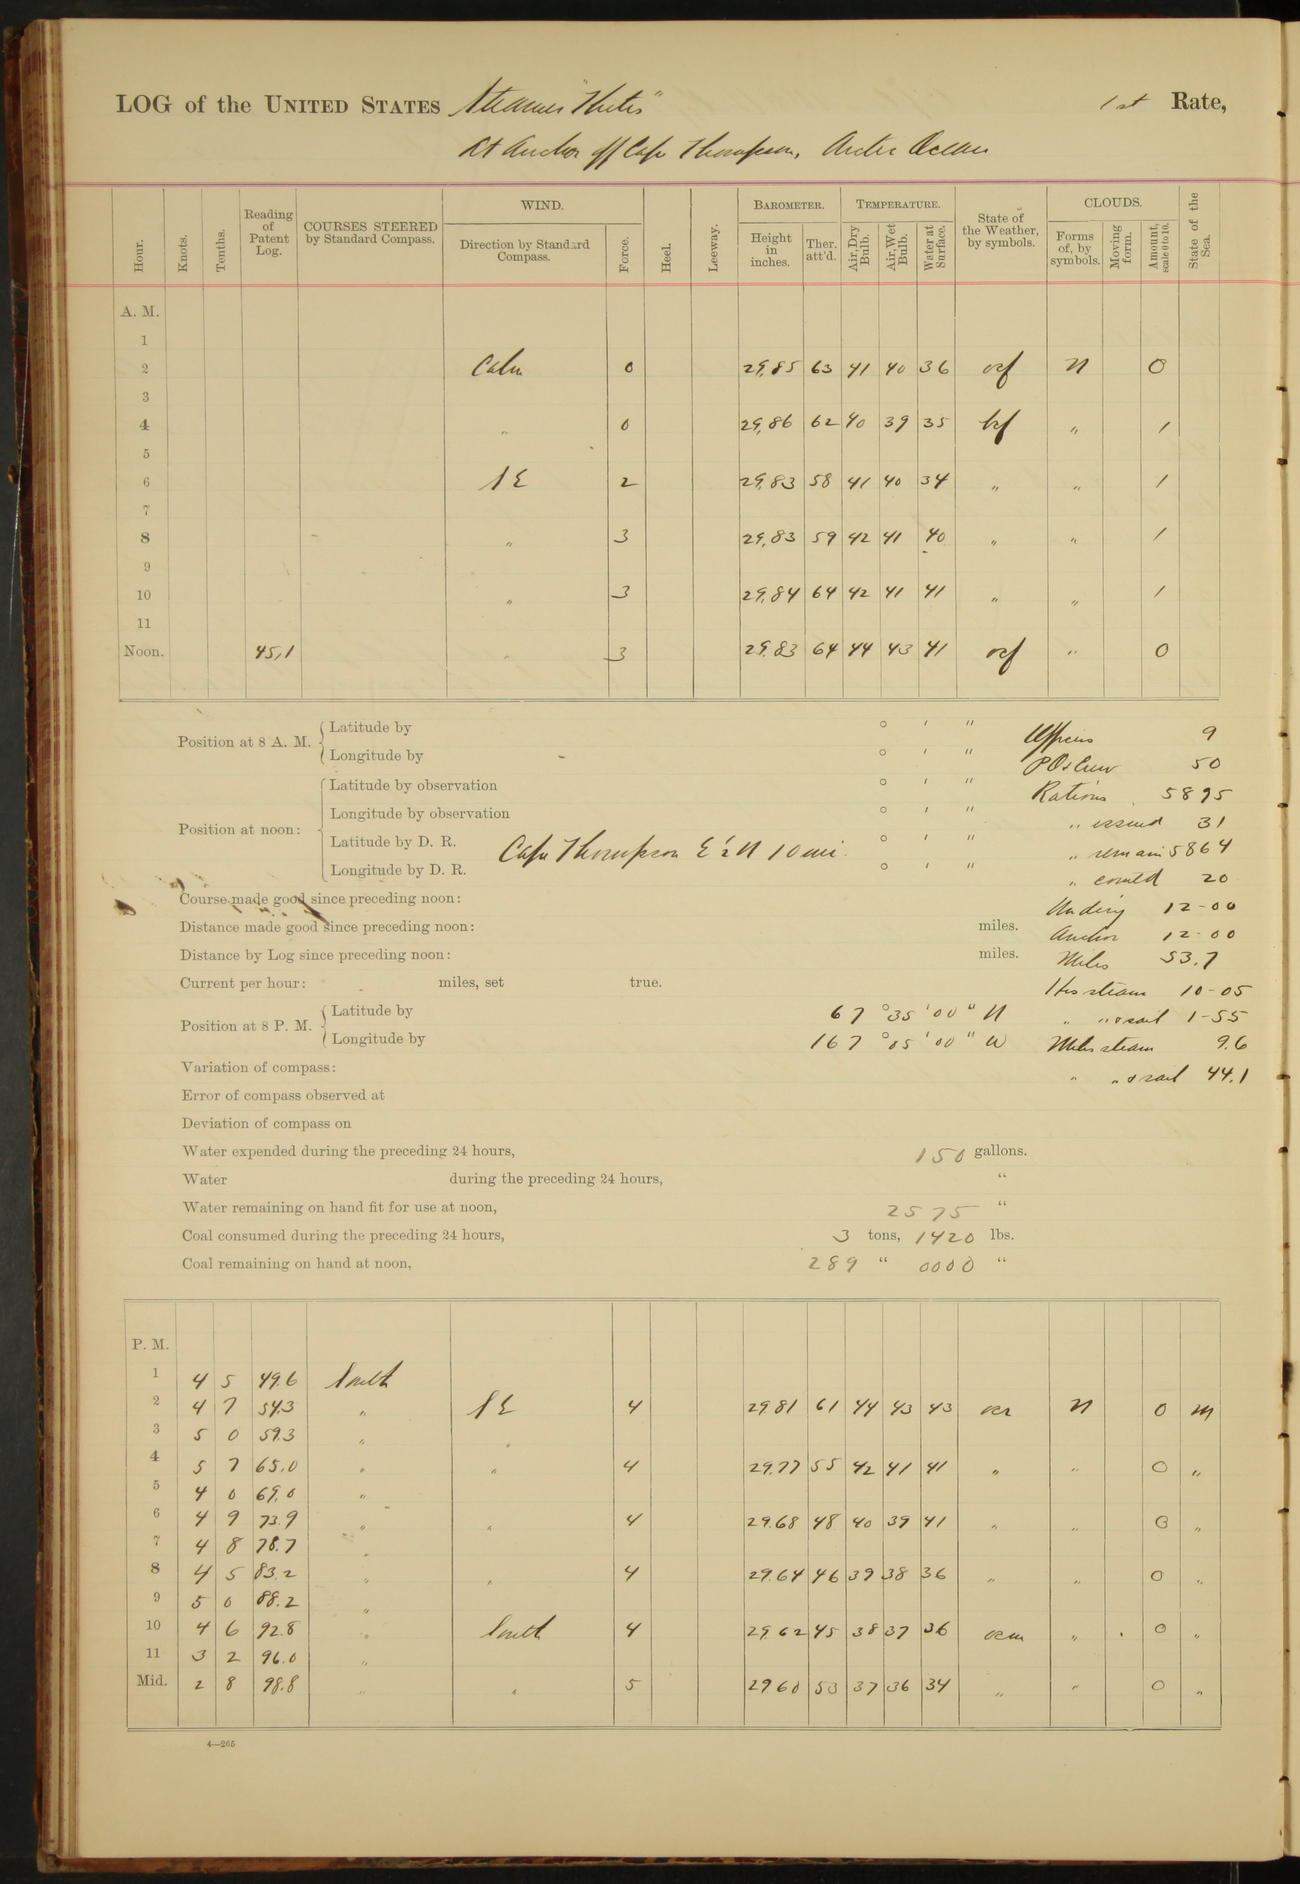 LOG of the UNITED STATES Steamer "Thetis" 1st Rate,
At Anchor off Cape Thompson, Arctic Ocean
Hour. Knots. Tenths. Reading of Patent Log. COURSES STEERED by Standard Compass. WIND. Direction by Standard Compass. Force. Heel. Leeway. BAROMETER. Height in inches. Ther. att'd. TEMPERATURE. Air, Dry Bulb. Air, Wet Bulb. Water at Surface. State of the Weather, by symbols. CLOUDS. Forms of, by symbols. Moving form. Amount, scale 0 to 10. State of the Sea.
A. M.
1
2 Calm 0 29,85 63 41 40 36 ocf N 0
3
4 " 0 29,86 62 40 39 35 bcf " 1
5
6 SE 2 29,83 58 41 40 34 " " 1
7
8 " 3 29,83 59 42 41 40 " " 1
9
10 " 3 29,84 64 42 41 41 " " 1
11
Noon. 45,1 " 3 29.83 64 44 43 41 ocf " 0
Position at 8 A. M. Latitude by ° ' " Officers 9
Longitude by ° ' " P Os Crew 50
Position at noon: Latitude by observation ° ' " Rations 5895
Longitude by observation ° ' " " issued 31
Latitude by D. R. ° ' " " remain 5864
Cape Thompson E ½ N 10 mi.
Longitude by D. R. ° ' " " comtd 20
Course made good since preceding noon: Undwg 12-00
Distance made good since preceding noon: miles. Anchor 12-00
Distance by Log since preceding noon: miles. Miles 53.7
Current per hour: miles, set true. Hrs steam 10-05
Position at 8 P. M. Latitude by 67 ° 35 ' 00 " N " " & sail 1-55
Longitude by 167 ° 05 ' 00 " W Miles steam 9.6
Variation of compass: " " & sail 44.1
Error of compass observed at
Deviation of compass on
Water expended during the preceding 24 hours, 150 gallons.
Water during the preceding 24 hours, "
Water remaining on hand fit for use at noon, 2575 "
Coal consumed during the preceding 24 hours, 3 tons, 1420 lbs.
Coal remaining on hand at noon, 289 " 0000 "
P. M.
1 4 5 49.6 South
2 4 7 54.3 " SE 4 29.81 61 44 43 43 ocr N 0 M
3 5 0 59.3 " "
4 5 7 65.0 " " 4 29.77 55 42 41 41 " " 0 "
5 4 0 69.0 "
6 4 9 73.9 " " 4 29.68 48 40 39 41 " " 0 "
7 4 8 78.7 "
8 4 5 83.2 " " 4 29.64 46 39 38 36 " " 0 "
9 5 0 88.2 "
10 4 6 92.8 " South 4 29.62 45 38 37 36 ocm " 0 "
11 3 2 96.0 "
Mid. 2 8 98.8 " " 5 29.60 50 37 36 34 " " 0 "
4—265